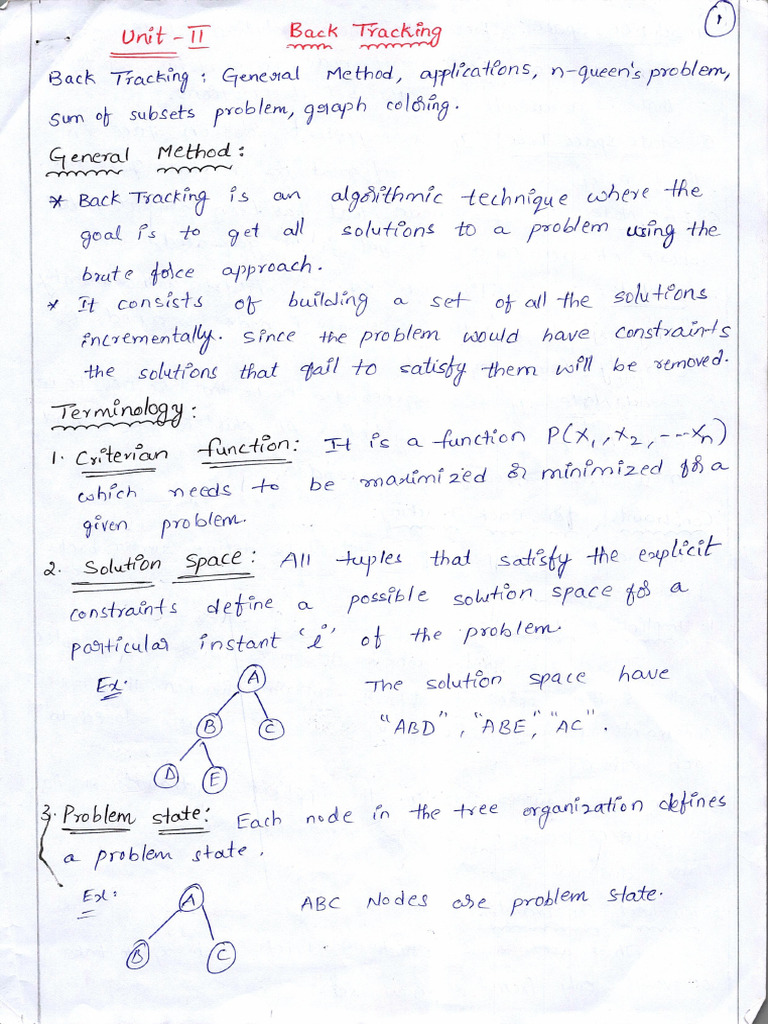 1
Unit - II Back Tracking
Back Tracking : General Method, applications, n-queen's problem,
Sum of subsets problem, graph coloring.
General Method :
* Back Tracking is an algorithmic technique where the
goal is to get all solutions to a problem using the
brute force approach.
* It consists of building a set of all the solutions
incrementally. Since the problem would have constraints
the solutions that fail to satisfy them will be removed.
Terminology :
1. Criterian function : It is a function P(X1, X2, ---Xn)
which needs to be maximized or minimized for a
given problem.
2. Solution Space : All tuples that satisfy the explicit
constraints define a possible solution space for a
particular instant 'i' of the problem.
Ex: A The solution space have
B C "ABD", "ABE", "AC".
D E
3. Problem state : Each node in the tree organization defines
a problem state.
Ex: A ABC Nodes are problem state.
B C